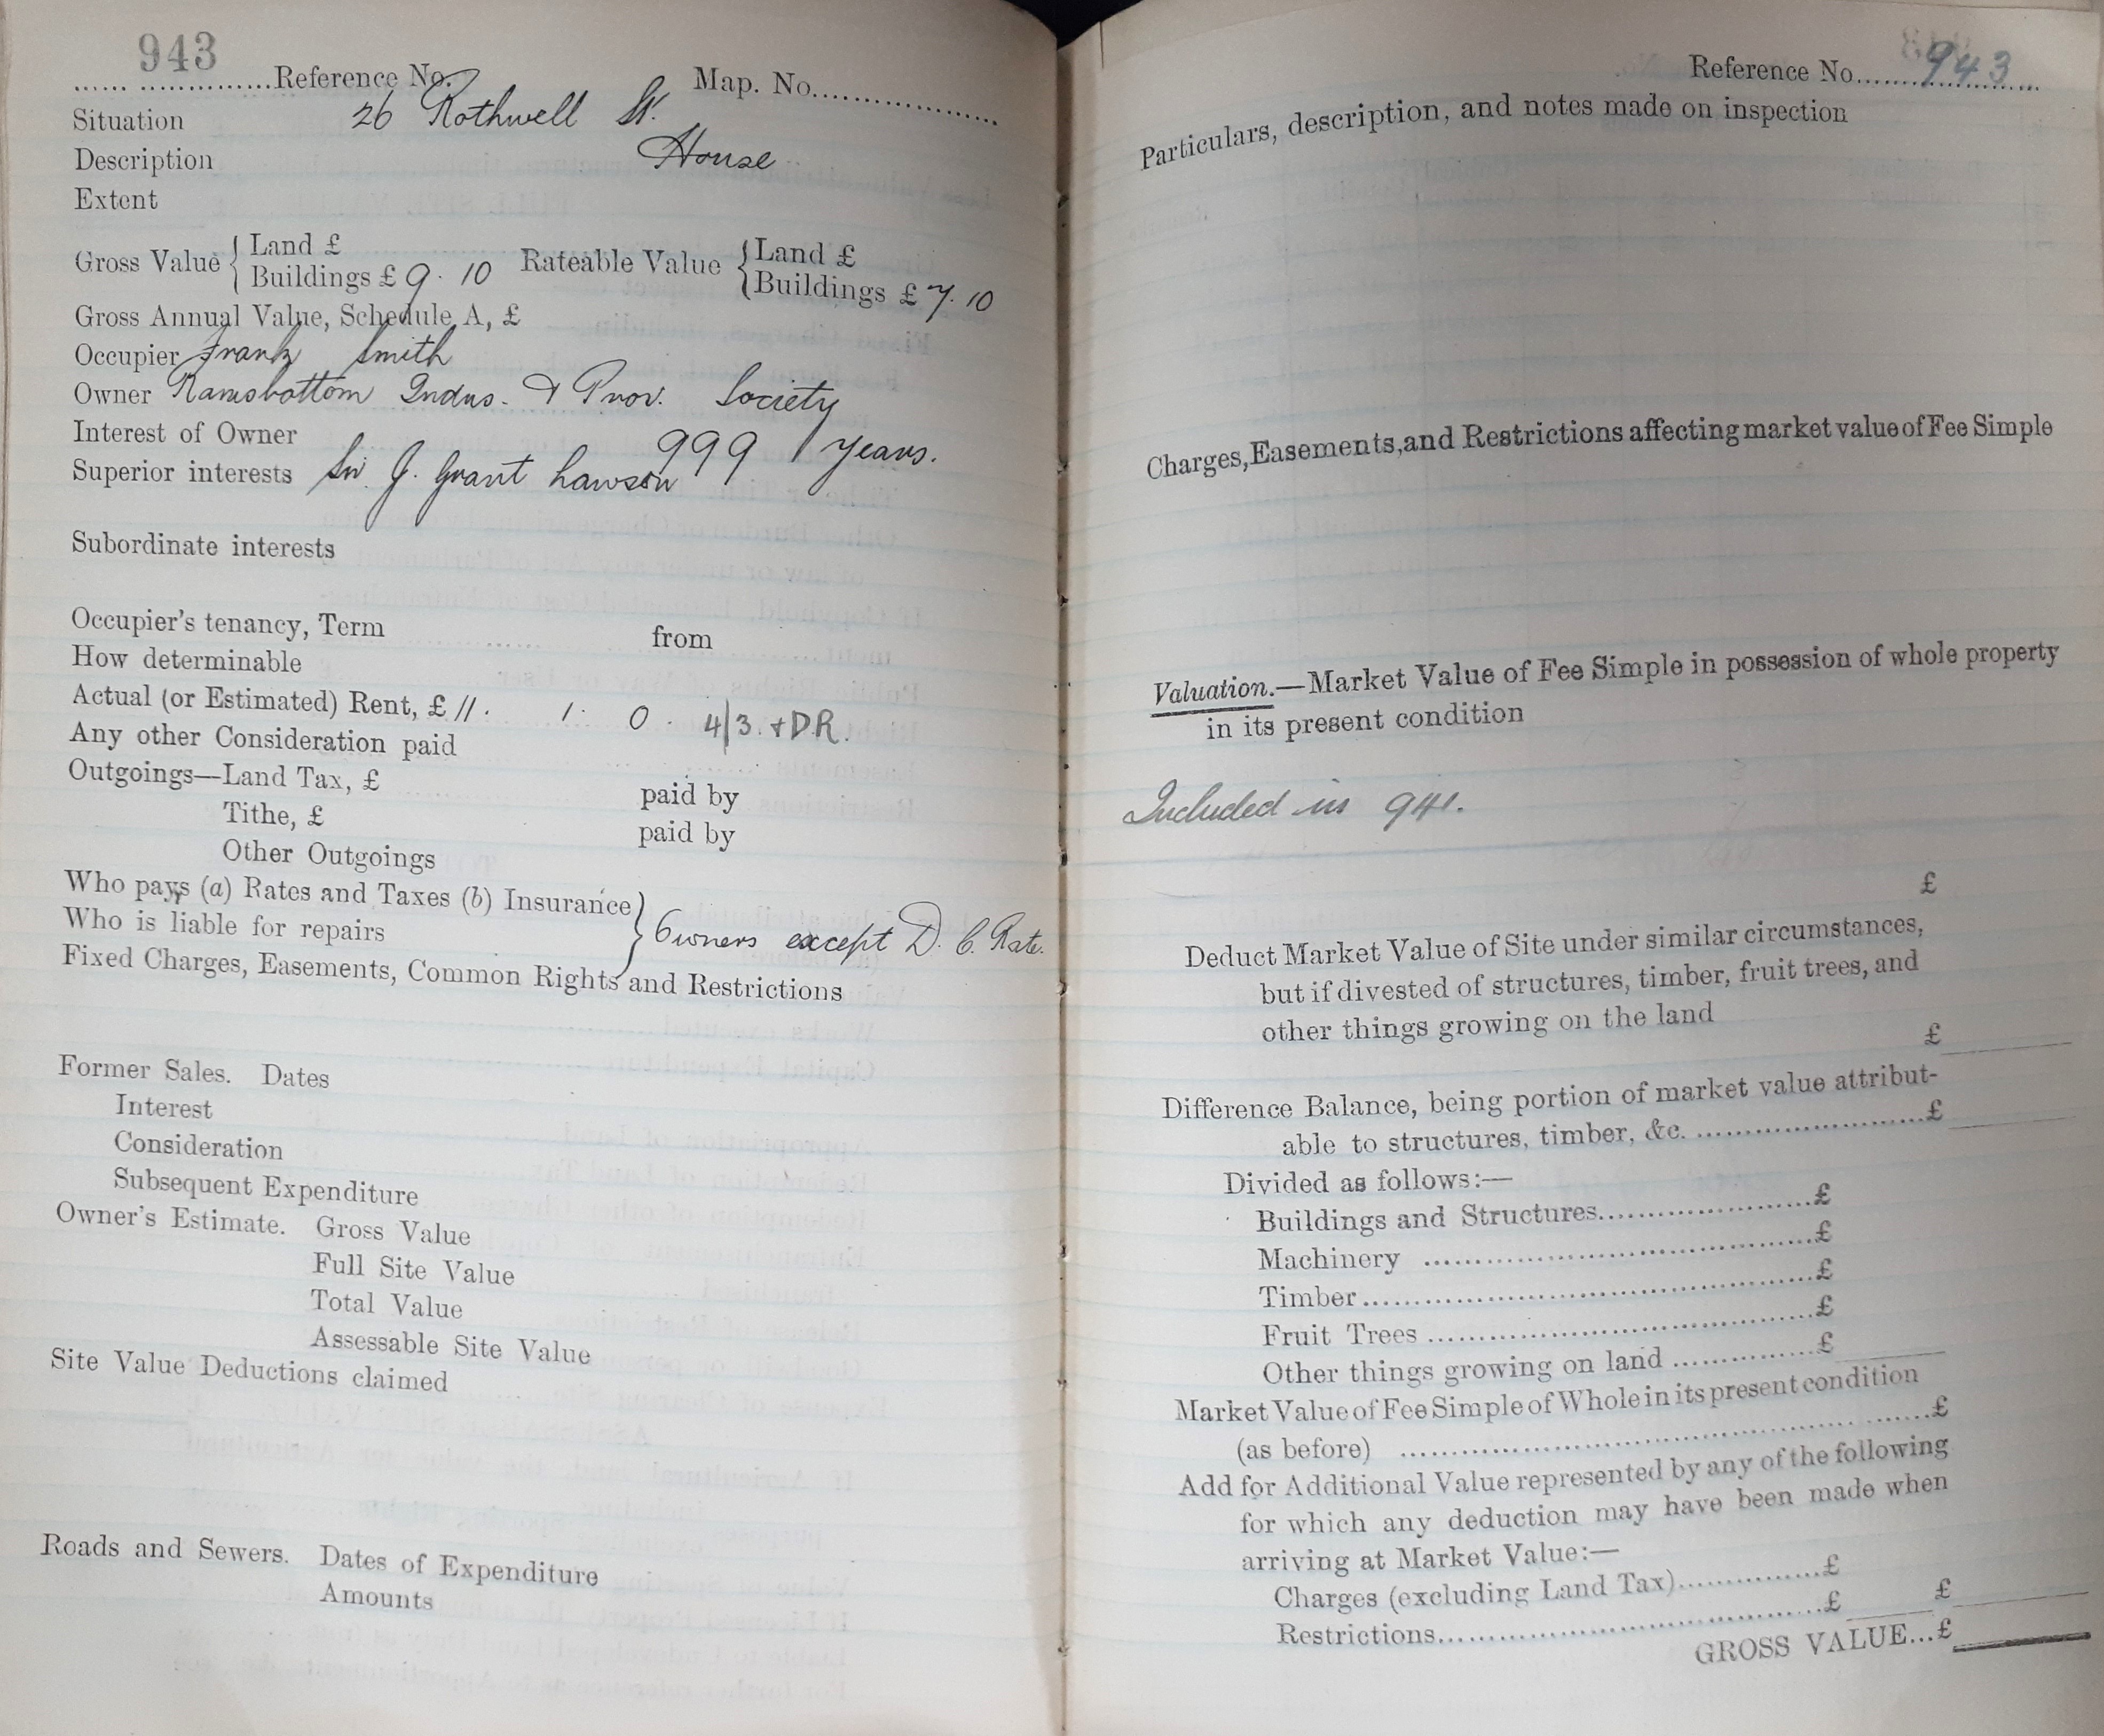 943
Reference No. Map. No.
Situation 26 Rothwell St.
Description House
Extent
Gross Value { Land £ Rateable Value { Land £
Buildings £ 9. 10 Buildings £ 7. 10
Gross Annual Value, Schedule A, £
Occupier Frank Smith
Owner Ramsbottom Indus. & Prov. Society
Interest of Owner 999 years.
Superior interests Sir J. Grant Lawson
Subordinate interests
Occupier's tenancy, Term from
How determinable
Actual (or Estimated) Rent, £ 11. 1. 0. 4/3. + D.R.
Any other Consideration paid
Outgoings—Land Tax, £ paid by
Tithe, £ paid by
Other Outgoings
Who pays (a) Rates and Taxes (b) Insurance
Who is liable for repairs } Owners except D. C. Rate.
Fixed Charges, Easements, Common Rights and Restrictions
Former Sales. Dates
Interest
Consideration
Subsequent Expenditure
Owner's Estimate. Gross Value
Full Site Value
Total Value
Assessable Site Value
Site Value Deductions claimed
Roads and Sewers. Dates of Expenditure
Amounts
Reference No. 943
Particulars, description, and notes made on inspection
Charges, Easements, and Restrictions affecting market value of Fee Simple
Valuation.—Market Value of Fee Simple in possession of whole property
in its present condition
Included in 941.
£
Deduct Market Value of Site under similar circumstances,
but if divested of structures, timber, fruit trees, and
other things growing on the land
£
Difference Balance, being portion of market value attribut-
able to structures, timber, &c. £
Divided as follows:—
Buildings and Structures £
Machinery £
Timber £
Fruit Trees £
Other things growing on land £
Market Value of Fee Simple of Whole in its present condition
(as before) £
Add for Additional Value represented by any of the following
for which any deduction may have been made when
arriving at Market Value:—
Charges (excluding Land Tax) £
Restrictions £ £
GROSS VALUE...£